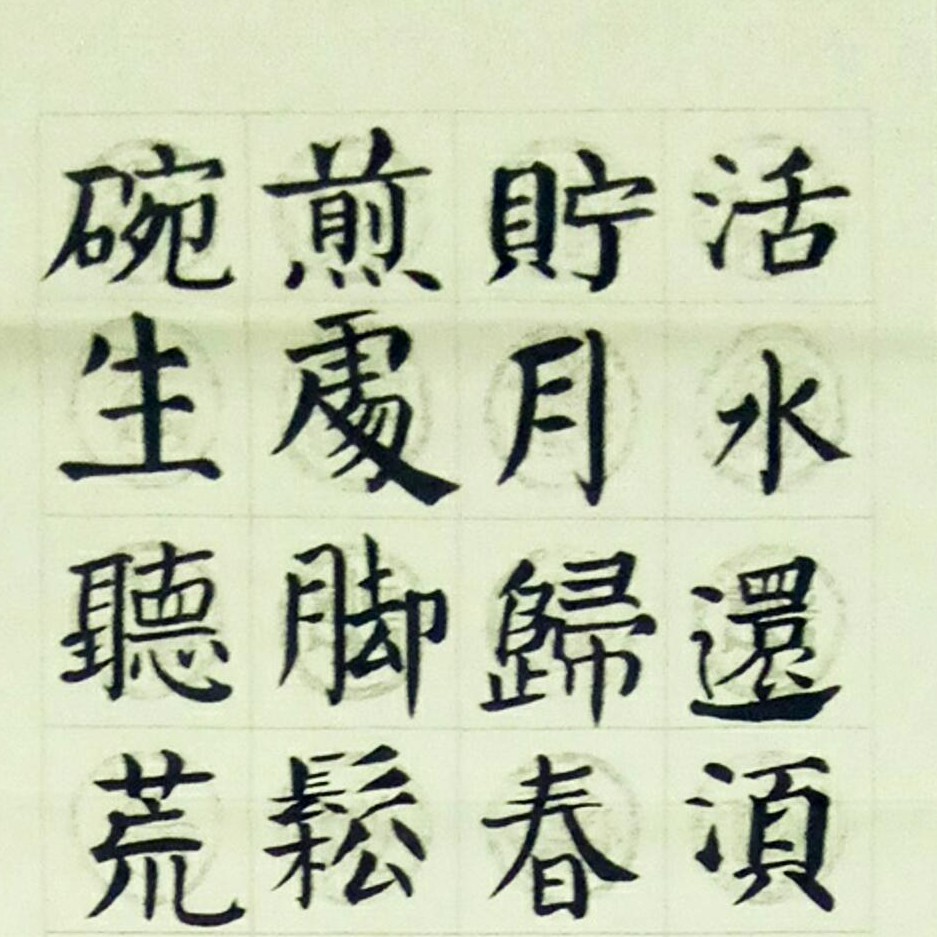 活水還湏
貯月歸春
煎處脚鬆
碗生聽荒